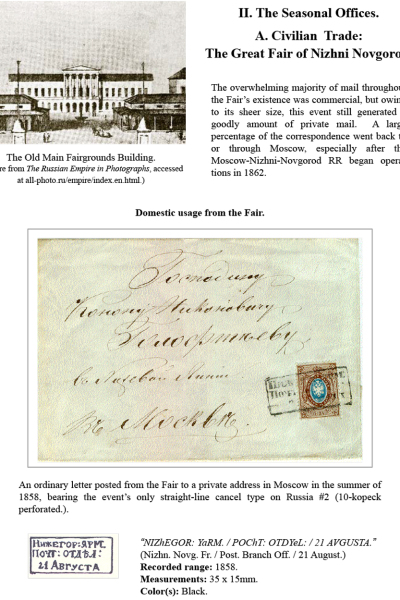 II. The Seasonal Offices.
A. Civilian Trade:
The Great Fair of Nizhni Novgoro
The Old Main Fairgrounds Building.
re from The Russian Empire in Photographs, accessed
at all-photo.ru/empire/index.en.html.)
The overwhelming majority of mail throughou
the Fair's existence was commercial, but owin
to its sheer size, this event still generated
goodly amount of private mail. A larg
percentage of the correspondence went back t
or through Moscow, especially after th
Moscow-Nizhni-Novgorod RR began opera
tions in 1862.
Domestic usage from the Fair.
Господину
Конону Никоновичу
въ Москвѣ
An ordinary letter posted from the Fair to a private address in Moscow in the summer of
1858, bearing the event's only straight-line cancel type on Russia #2 (10-kopeck
perforated.).
НИЖЕГОР: ЯРМ.
ПОЧТ: ОТДѢЛ:
21 АВГУСТА
"NIZhEGOR: YaRM. / POChT: OTDYeL: / 21 AVGUSTA."
(Nizhn. Novg. Fr. / Post. Branch Off. / 21 August.)
Recorded range: 1858.
Measurements: 35 x 15mm.
Color(s): Black.